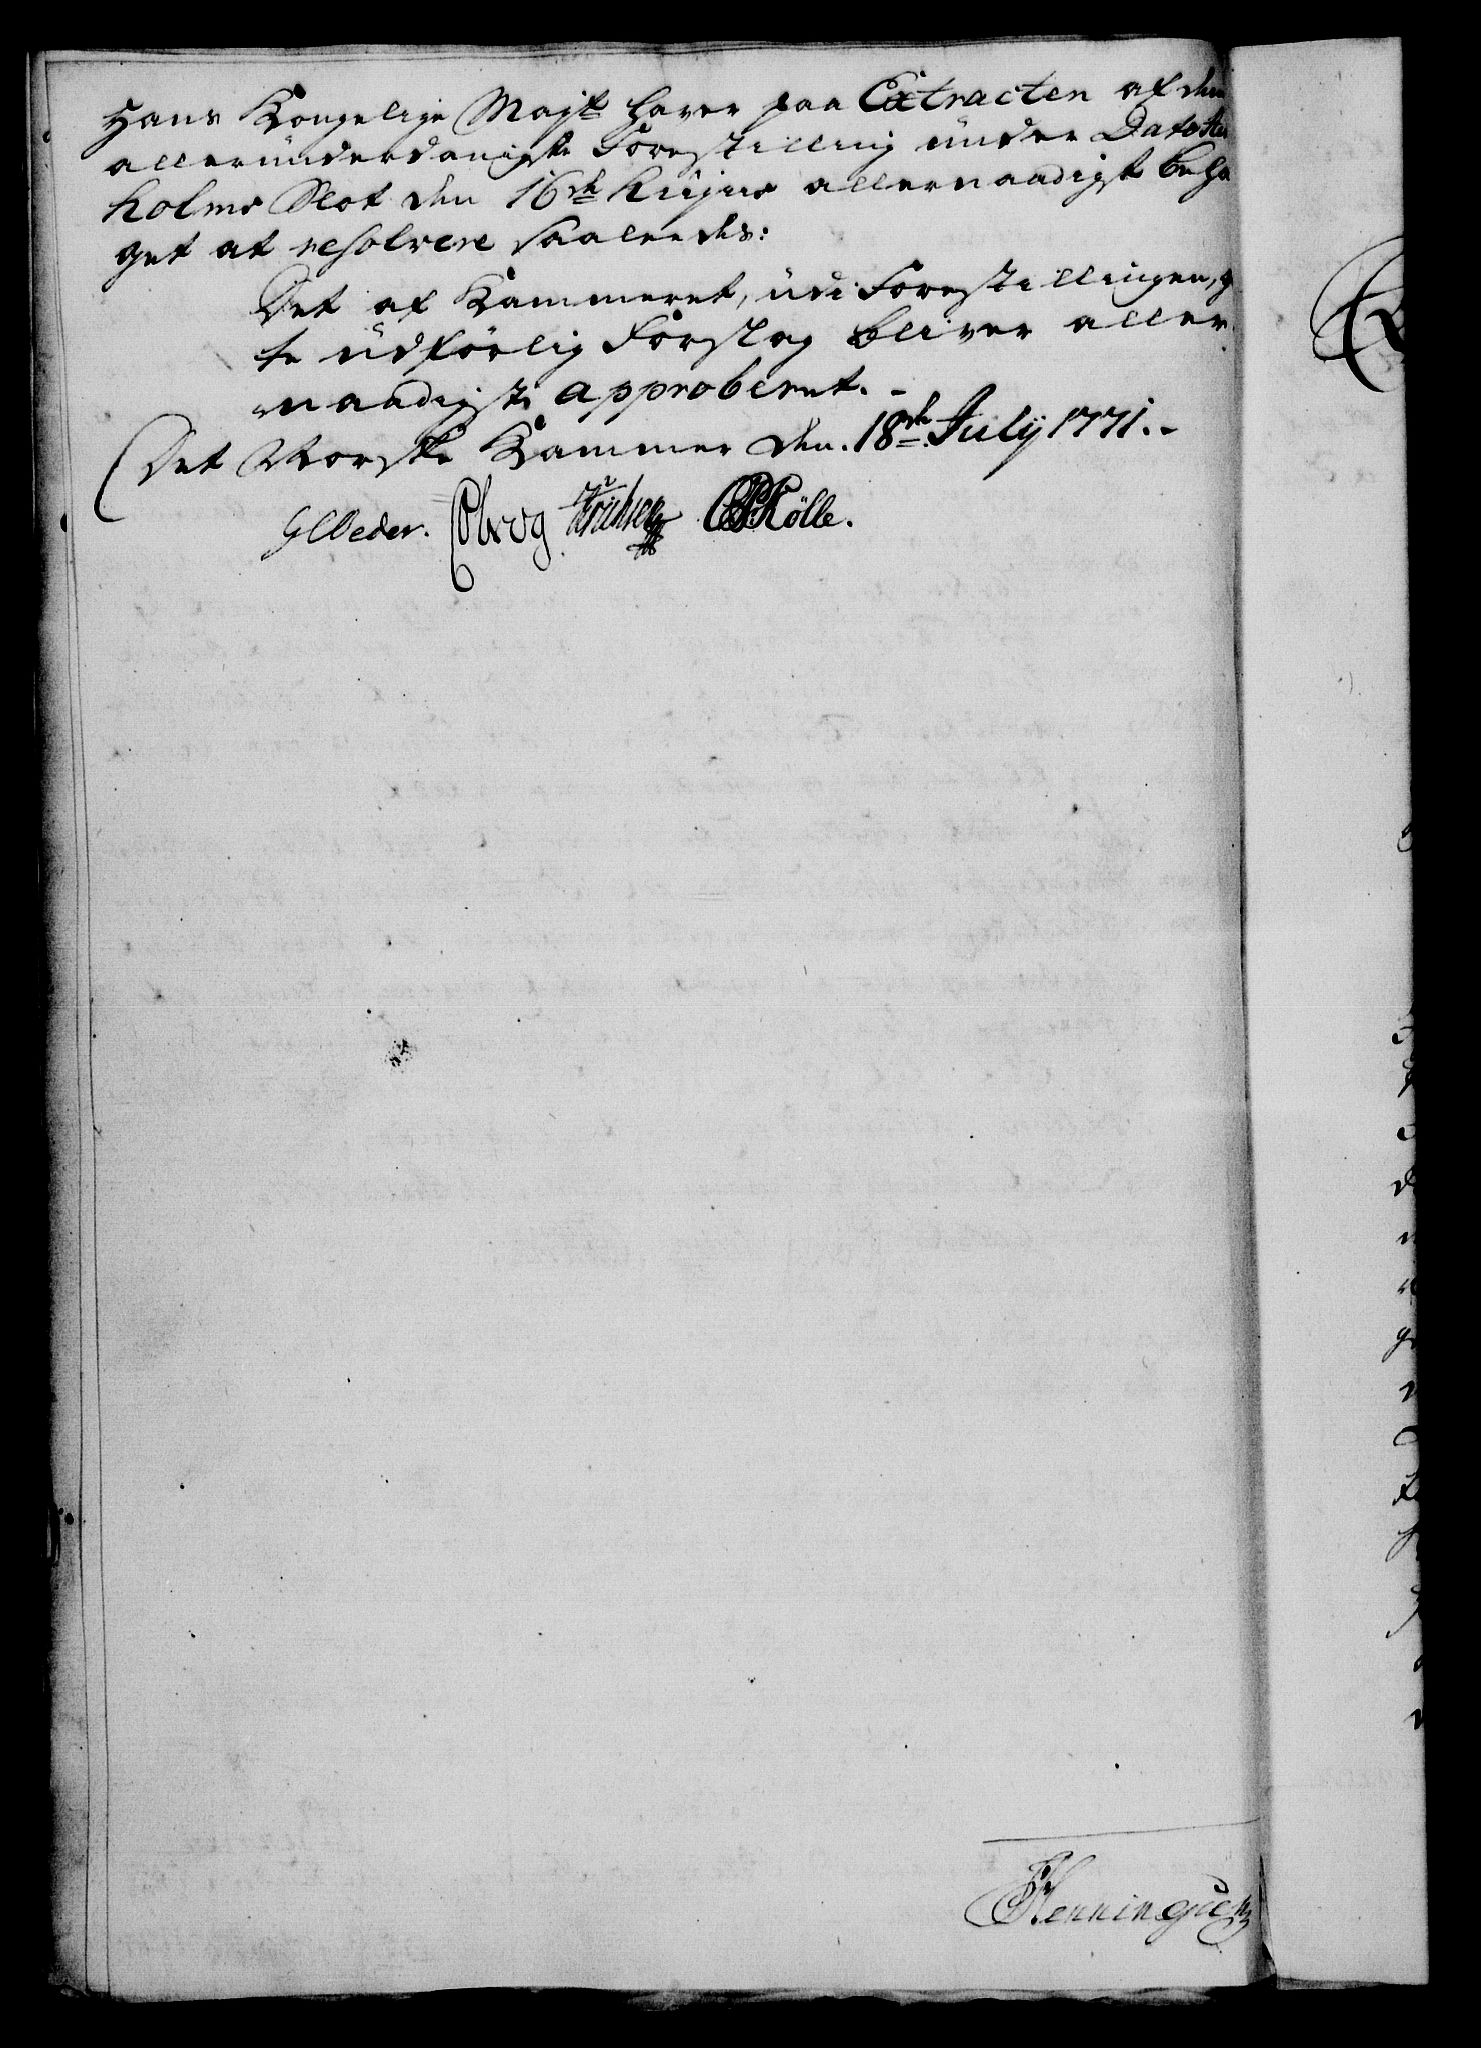 Hans Kongelige Majst. haver paa Extracten af den
alleründerdanigste Forestilling ünder Dato
holms Slot den 16de hüjus allernaadigst beha
get at resolvere saaledes:
Det af Kammeret, üdi Forestillingen, g
te üdførlig Forslag bliver aller
naadigst approberet. -
Det Norske Kammer den. 18de. Julij 1771. -
GCOeder. CPRölle.
Henningsen